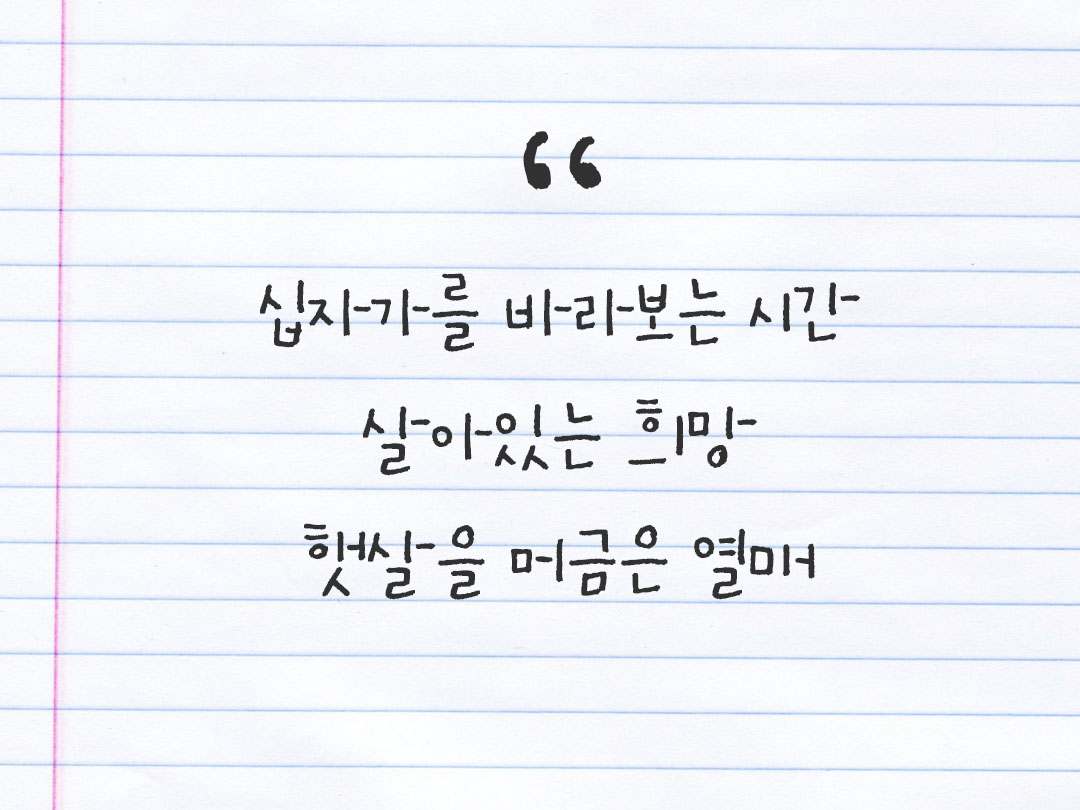 “
십자가를 바라보는 시간
살아있는 희망
햇살을 머금은 열매